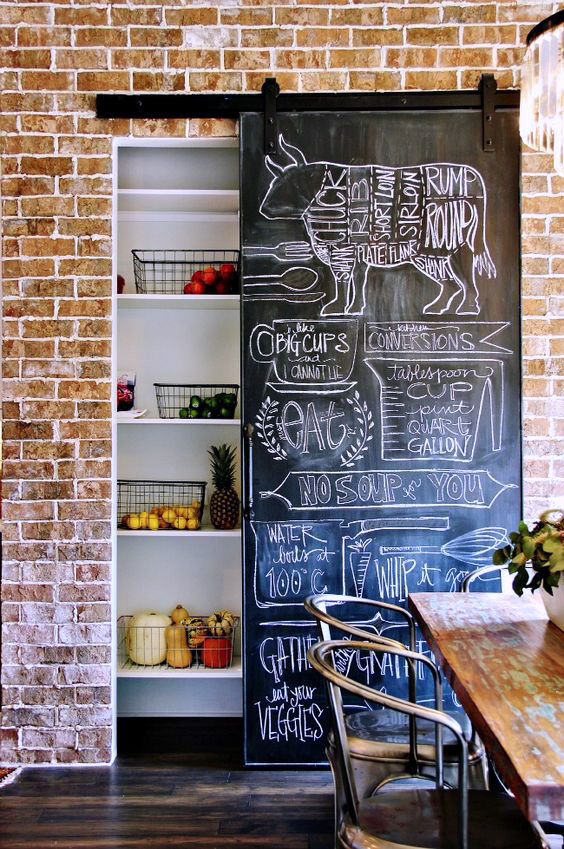 CHUCK
RIB
SHORT LOIN
SIRLOIN
RUMP
ROUND
SHANK
PLATE
FLANK
SHANK
i like
BIG CUPS
and
I CANNOT LIE
kitchen
CONVERSIONS
tablespoon
CUP
pint
QUART
GALLON
eat
NO SOUP for YOU
WATER
boils at
100°C
WHIP it good
GATH
GRATEF
eat your
VEGGIES